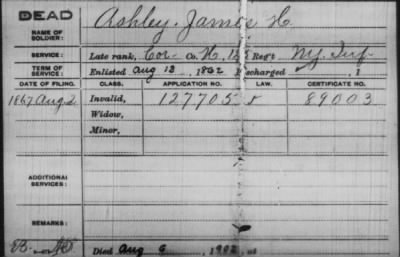 DEAD
NAME OF SOLDIER: Ashley, James H.
SERVICE: Late rank, Cor Co. H, Reg't NY. Inf
TERM OF SERVICE: Enlisted Aug 13, 1862 Discharged , 1
DATE OF FILING. CLASS. APPLICATION NO. LAW. CERTIFICATE NO.
1867 Aug 2 Invalid, 127705 89003
Widow,
Minor,
ADDITIONAL SERVICES:
REMARKS:
Died Aug 6, 1902, at